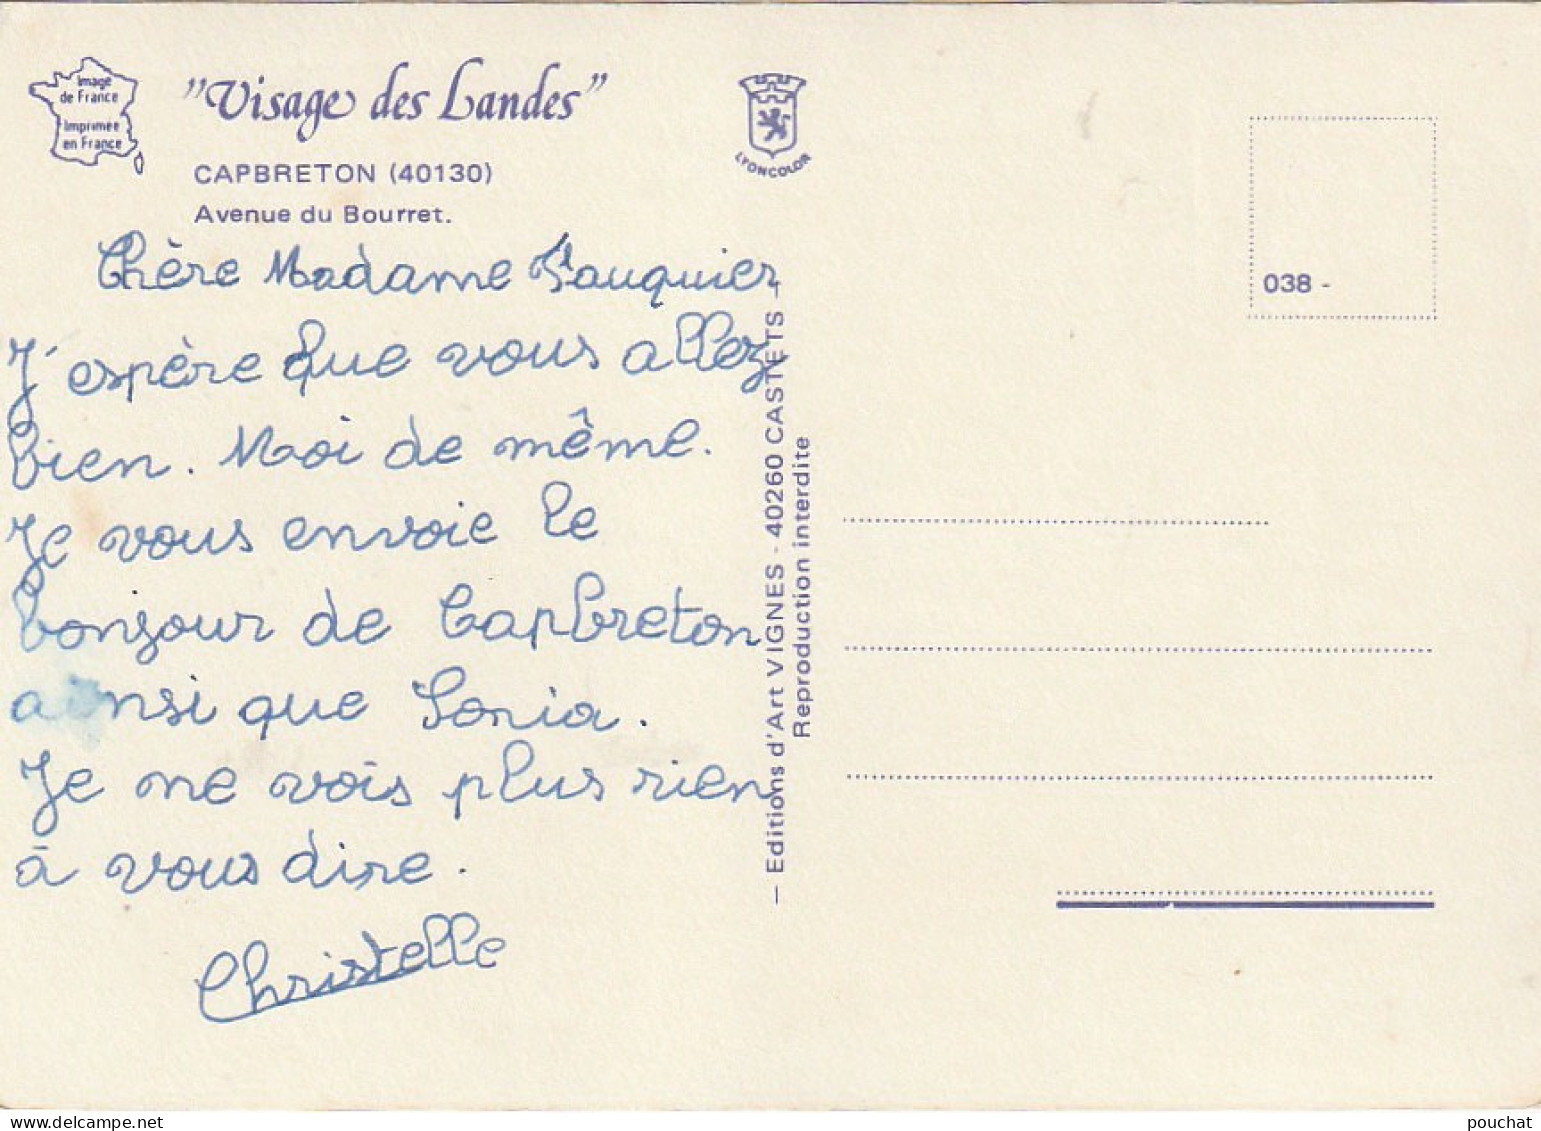 Image
de France
Imprimée
en France
"Visage des Landes"
CAPBRETON (40130)
Avenue du Bourret.
LYONCOLOR
038 -
Chère Madame Fauquier
J'espère que vous allez
bien. Moi de même.
Je vous envoie le
bonjour de Capbreton
ainsi que Sonia.
Je ne vois plus rien
à vous dire.
Christelle
— Editions d'Art VIGNES - 40260 CASTETS —
Reproduction interdite
www.delcampe.net
pouchat